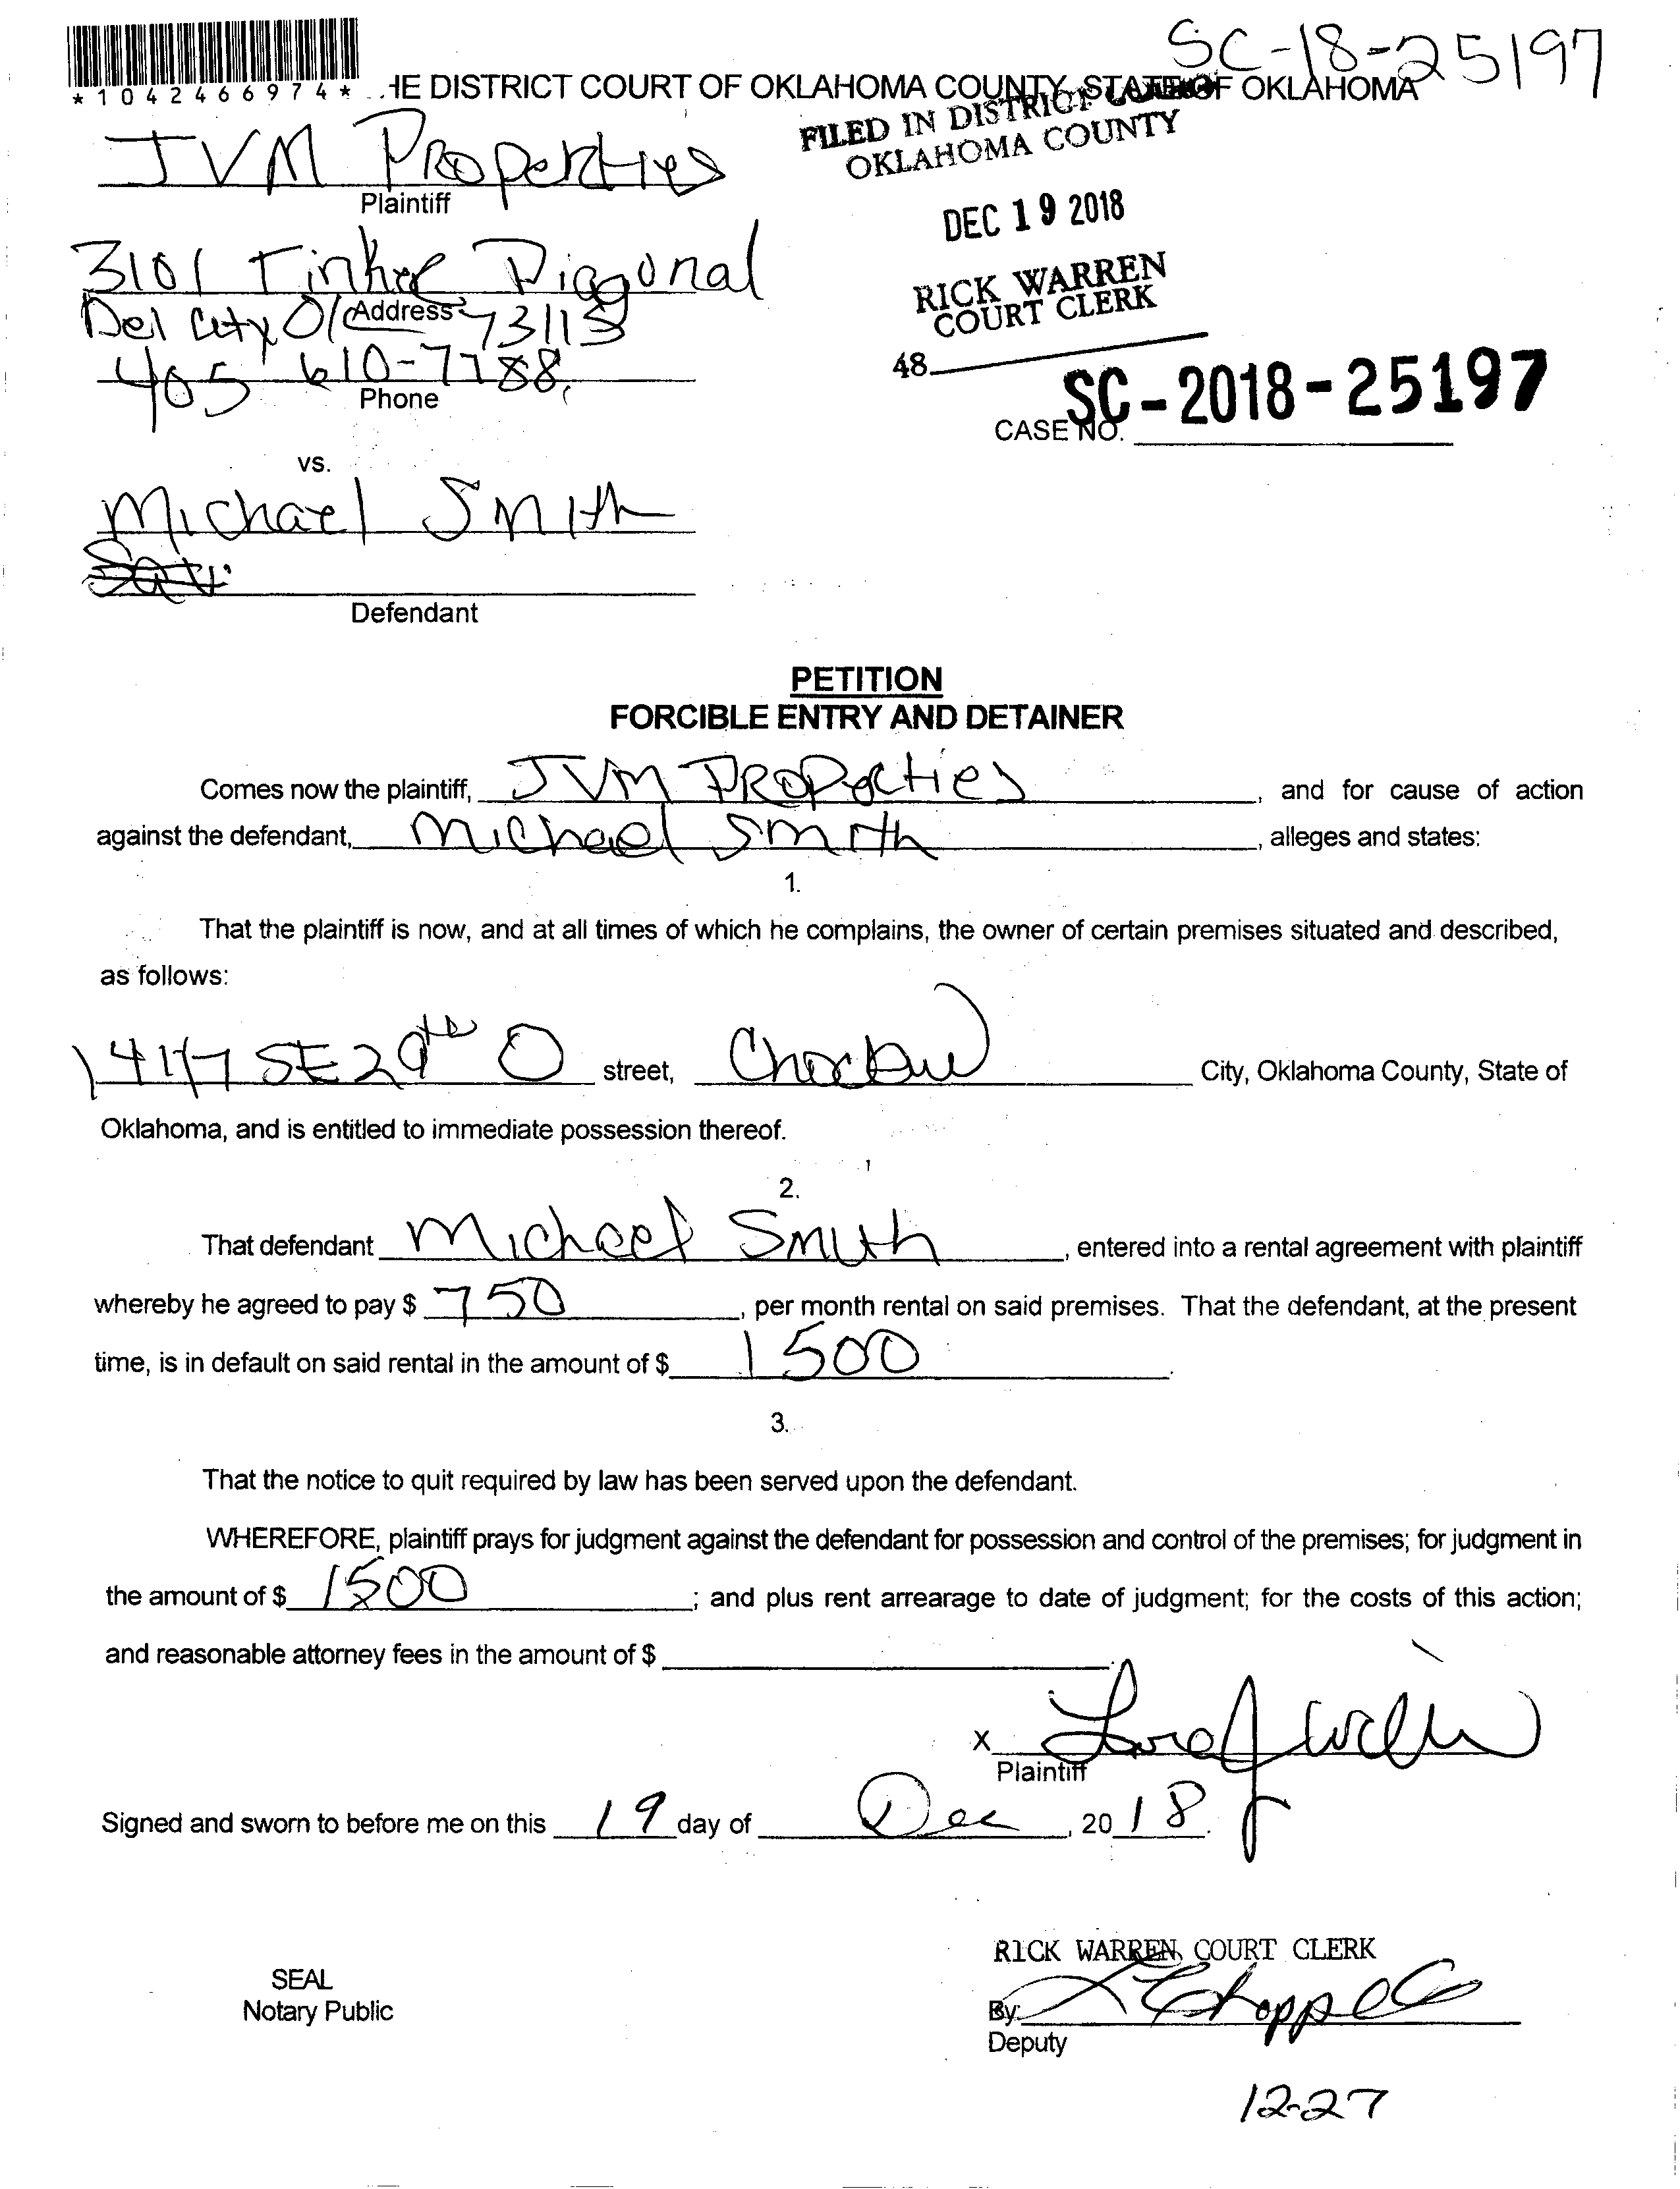 SC-18-25197
*1042466974* HE DISTRICT COURT OF OKLAHOMA COUNTY, STATE OF OKLAHOMA
FILED IN DISTRICT COURT
OKLAHOMA COUNTY
JVM Properties
Plaintiff
DEC 19 2018
3101 Tinker Diagonal
RICK WARREN
COURT CLERK
Del City Ok 73115
Address
48
405 610-7788
Phone
SC-2018-25197
CASE NO.
vs.
Michael Smith
Defendant
PETITION
FORCIBLE ENTRY AND DETAINER
Comes now the plaintiff, JVM Properties, and for cause of action
against the defendant, Michael Smith, alleges and states:
1.
That the plaintiff is now, and at all times of which he complains, the owner of certain premises situated and described,
as follows:
SE 29th O street, Choctaw City, Oklahoma County, State of
Oklahoma, and is entitled to immediate possession thereof.
2.
That defendant Michael Smith, entered into a rental agreement with plaintiff
whereby he agreed to pay $ 750, per month rental on said premises. That the defendant, at the present
time, is in default on said rental in the amount of $ 1500.
3.
That the notice to quit required by law has been served upon the defendant.
WHEREFORE, plaintiff prays for judgment against the defendant for possession and control of the premises; for judgment in
the amount of $ 1500; and plus rent arrearage to date of judgment; for the costs of this action;
and reasonable attorney fees in the amount of $
X
Plaintiff
Signed and sworn to before me on this 19 day of Dec, 2018.
RICK WARREN, COURT CLERK
SEAL
Notary Public
By:
Deputy
12-27